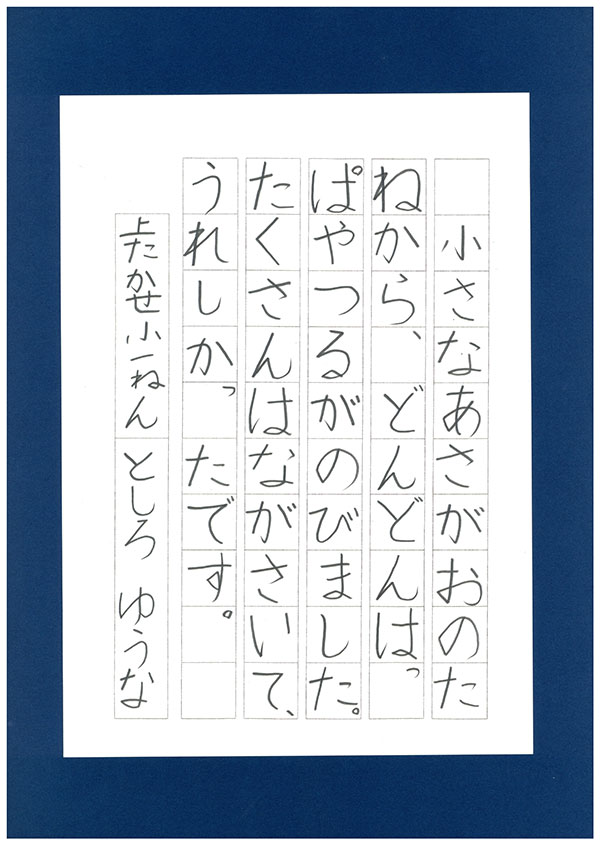 小さなあさがおのた
ねから、どんどんはっ
ぱやつるがのびました。
たくさんはながさいて、
うれしかったです。
上たかせ小一ねん としろ ゆうな